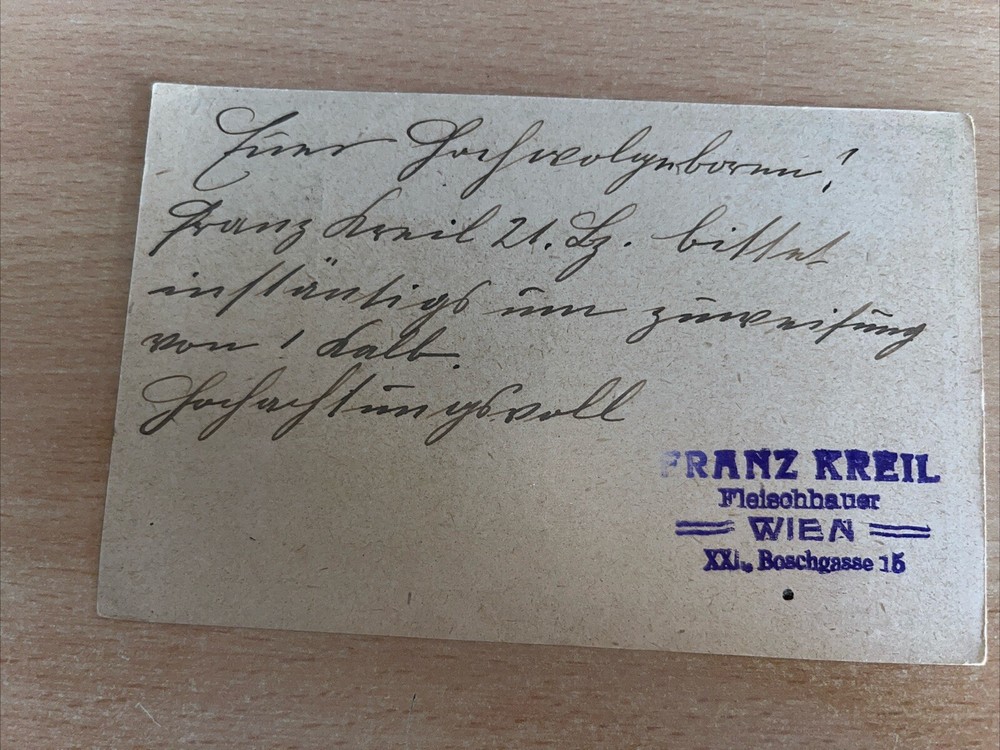 Euer Hochwolgeboren!
Franz Kreil 21. Bz. bittet
inständigs um zuweisung
von 1 Kalb.
Hochachtungsvoll
FRANZ KREIL
Fleischhauer
WIEN
XXI., Boschgasse 15